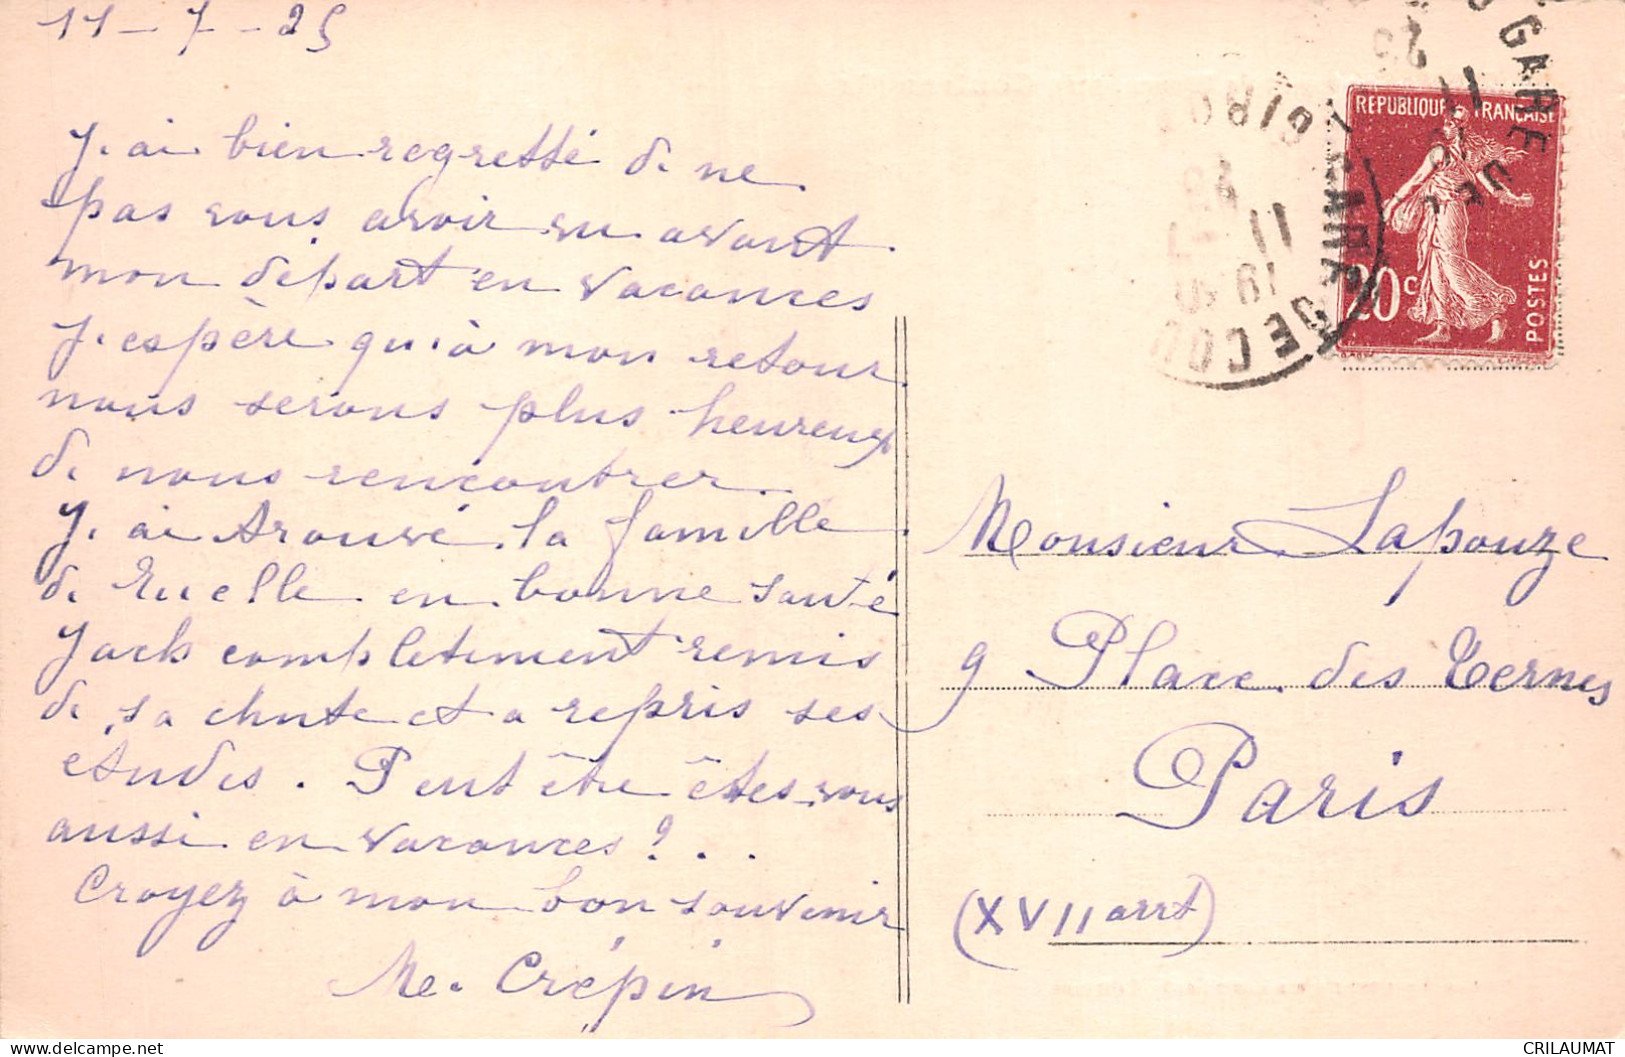 11-7-25
J'ai bien regretté de ne
pas vous avoir vu avant
mon départ en vacances
J'espère qu'à mon retour
nous serons plus heureux
de nous rencontrer.
J'ai trouvé la famille
de Ruelle en bonne santé
Jack completement remis
de sa chute et a repris ses
études. Peut être êtes vous
aussi en vacances ? ...
Croyez à mon bon souvenir
Me. Crépin
GARE DE
GARE DE COU
GIRO
11
RÉPUBLIQUE FRANÇAISE
20c
POSTES
Monsieur Lapouze
9 Place des Ternes
Paris
(XVII arrt)
delcampe.net
CRILAUMAT